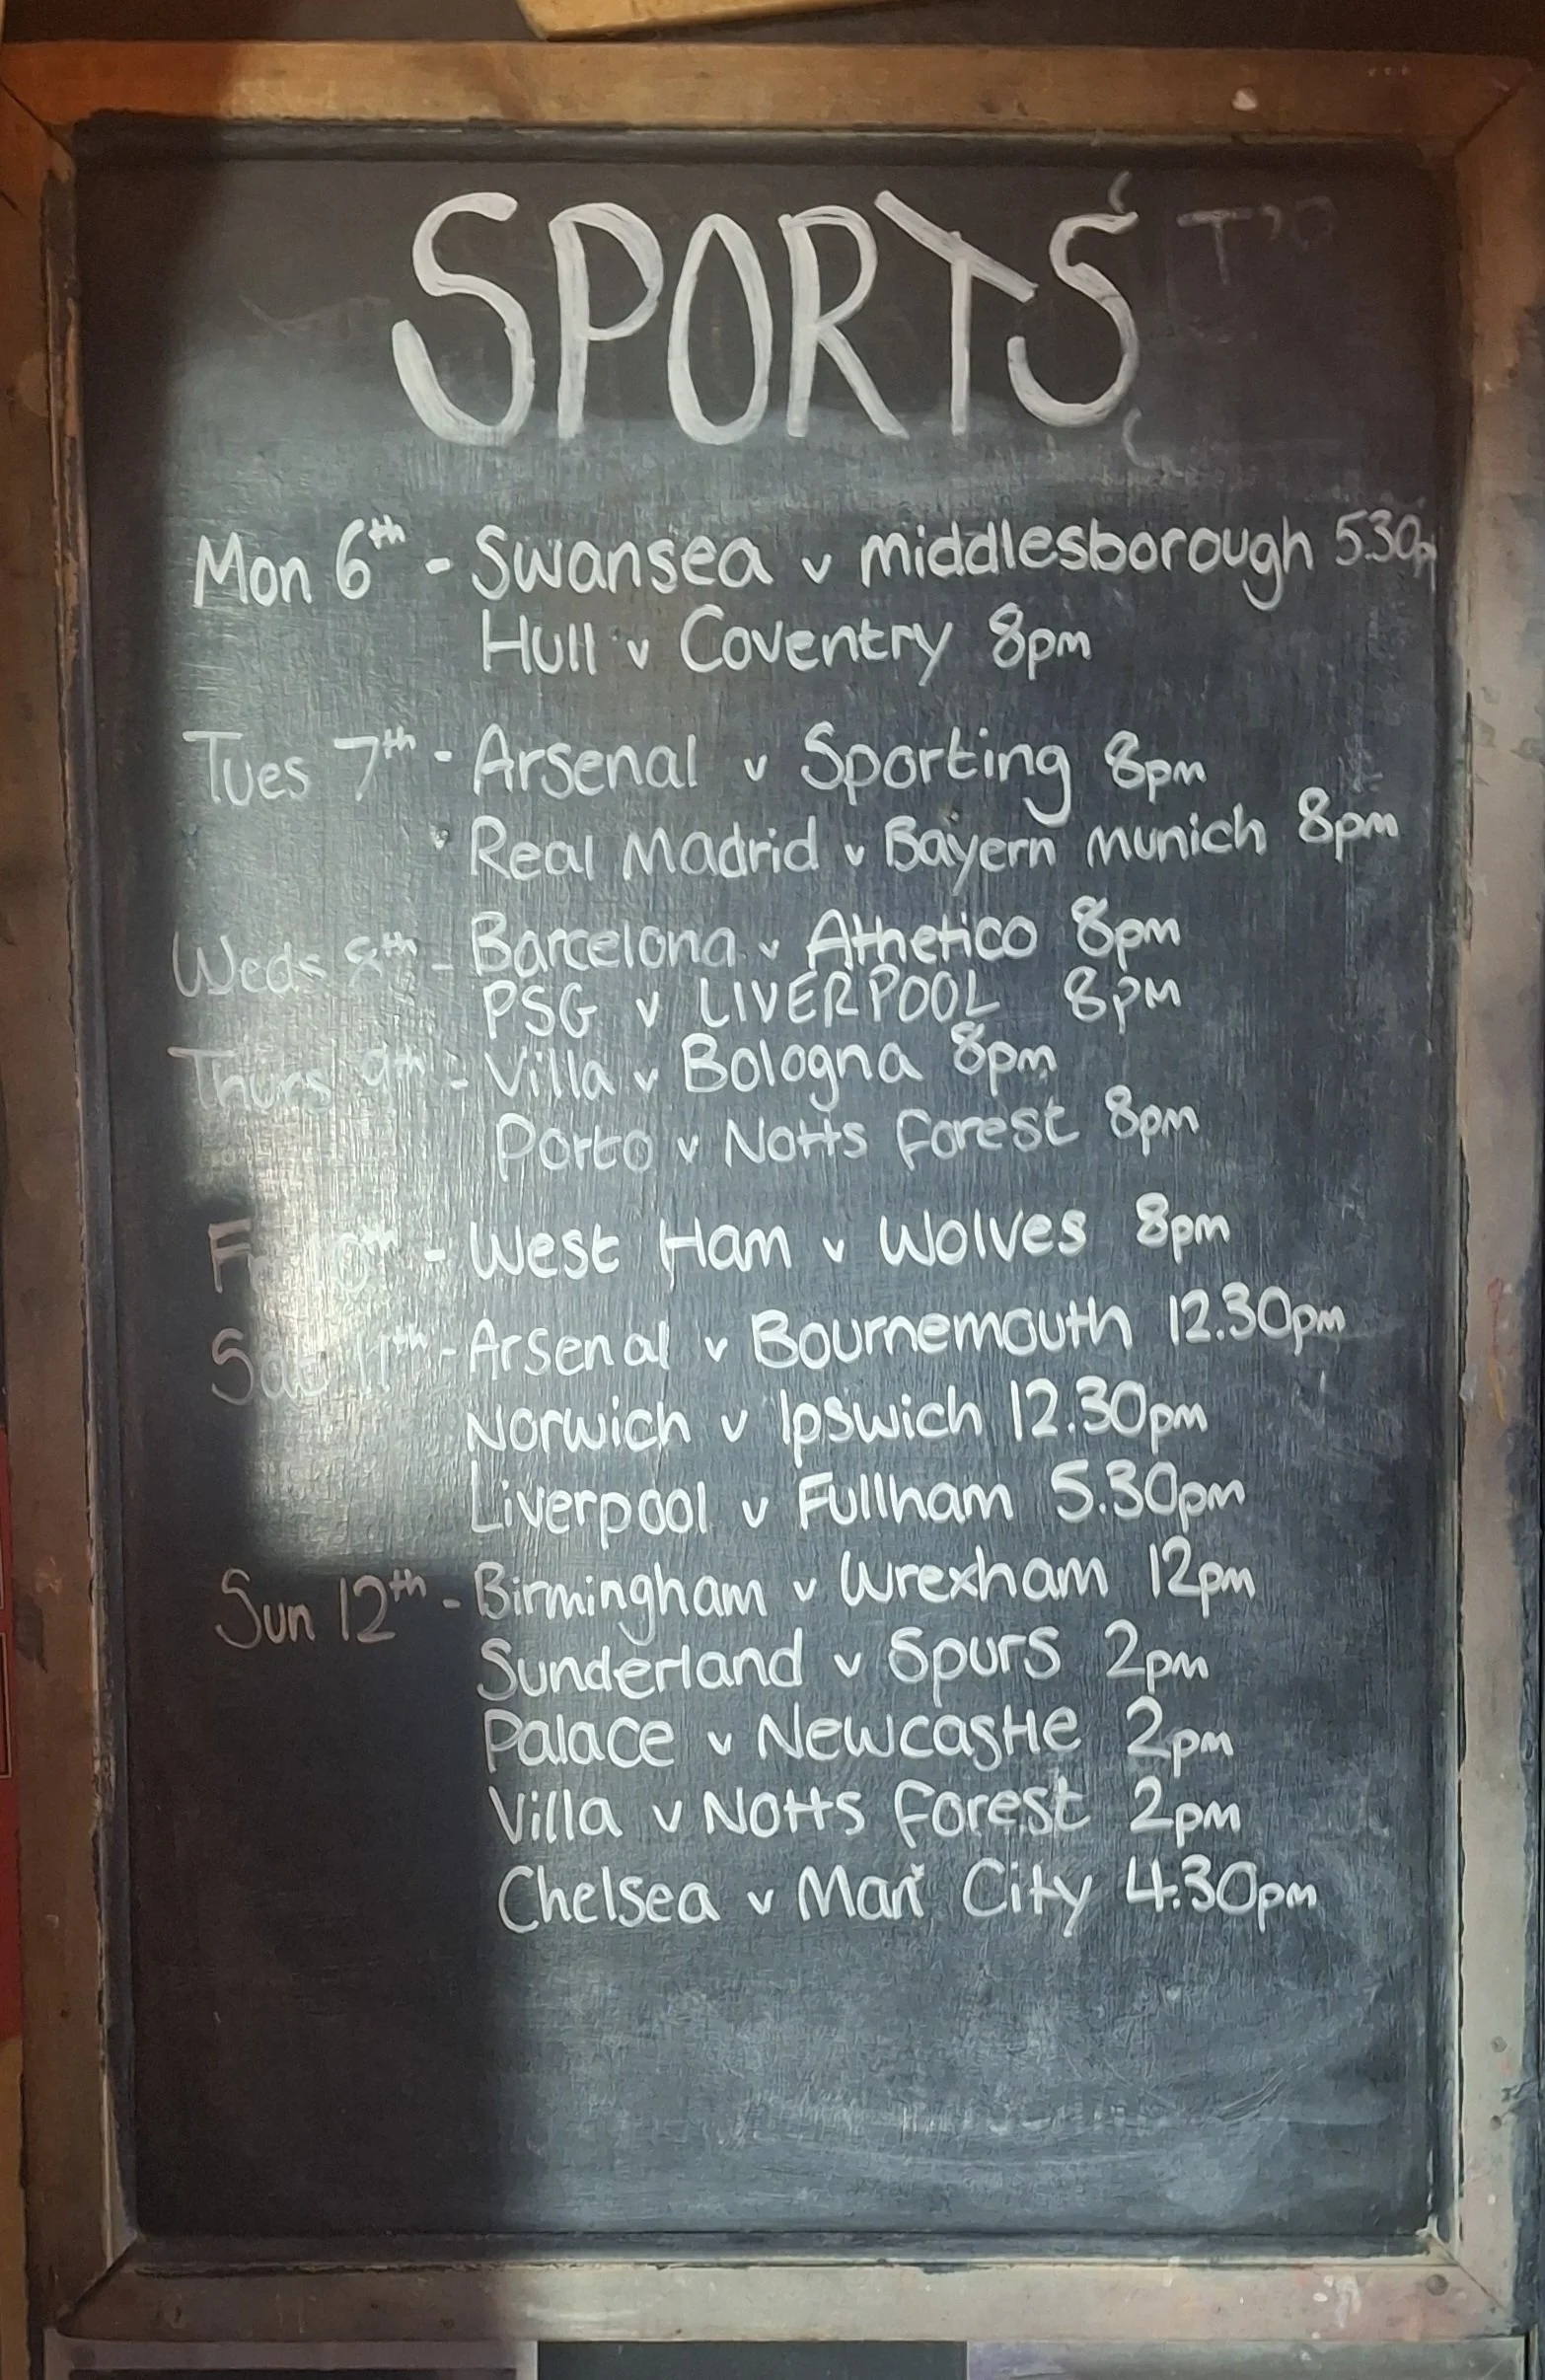 SPORTS
Mon 6th - Swansea v middlesborough 5.30p
Hull v Coventry 8pm
Tues 7th - Arsenal v Sporting 8pm
Real Madrid v Bayern munich 8pm
Weds 8th - Barcelona v Athetico 8pm
PSG v LIVERPOOL 8PM
Thurs 9th - Villa v Bologna 8pm
Porto v Notts Forest 8pm
Fri 10th - West Ham v Wolves 8pm
Sat 11th - Arsenal v Bournemouth 12.30pm
Norwich v Ipswich 12.30pm
Liverpool v Fullham 5.30pm
Sun 12th - Birmingham v Wrexham 12pm
Sunderland v Spurs 2pm
Palace v Newcastle 2pm
Villa v Notts Forest 2pm
Chelsea v Man City 4.30pm